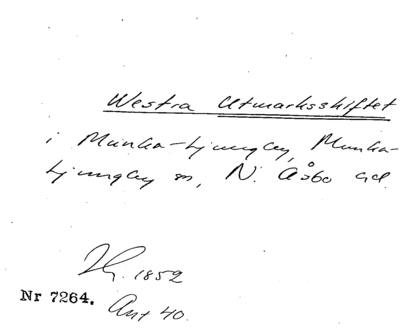 Westra Utmarksskiftet
i Munka-Ljungby, Munka-
Ljungby sn, N. Åsbo hd.
1852
Nr 7264. Ant 40.